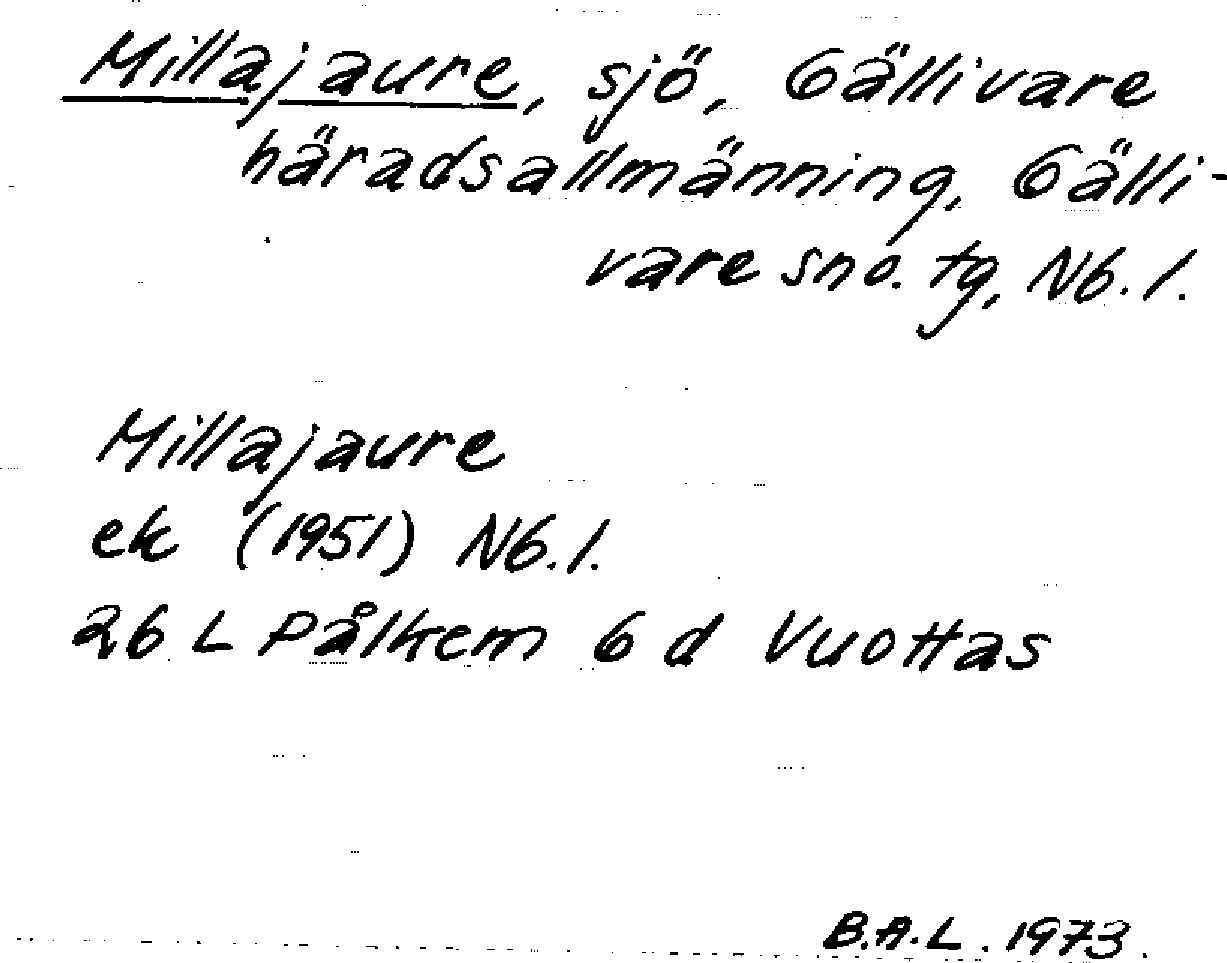 Millajaure, sjö, Gällivare
häradsallmänning, Gälli-
vare sno. tg, Nb. l.
Millajaure
ek (1951) Nb. l.
26 L Pålkem 6 d Vuottas
B.A.L. 1973.